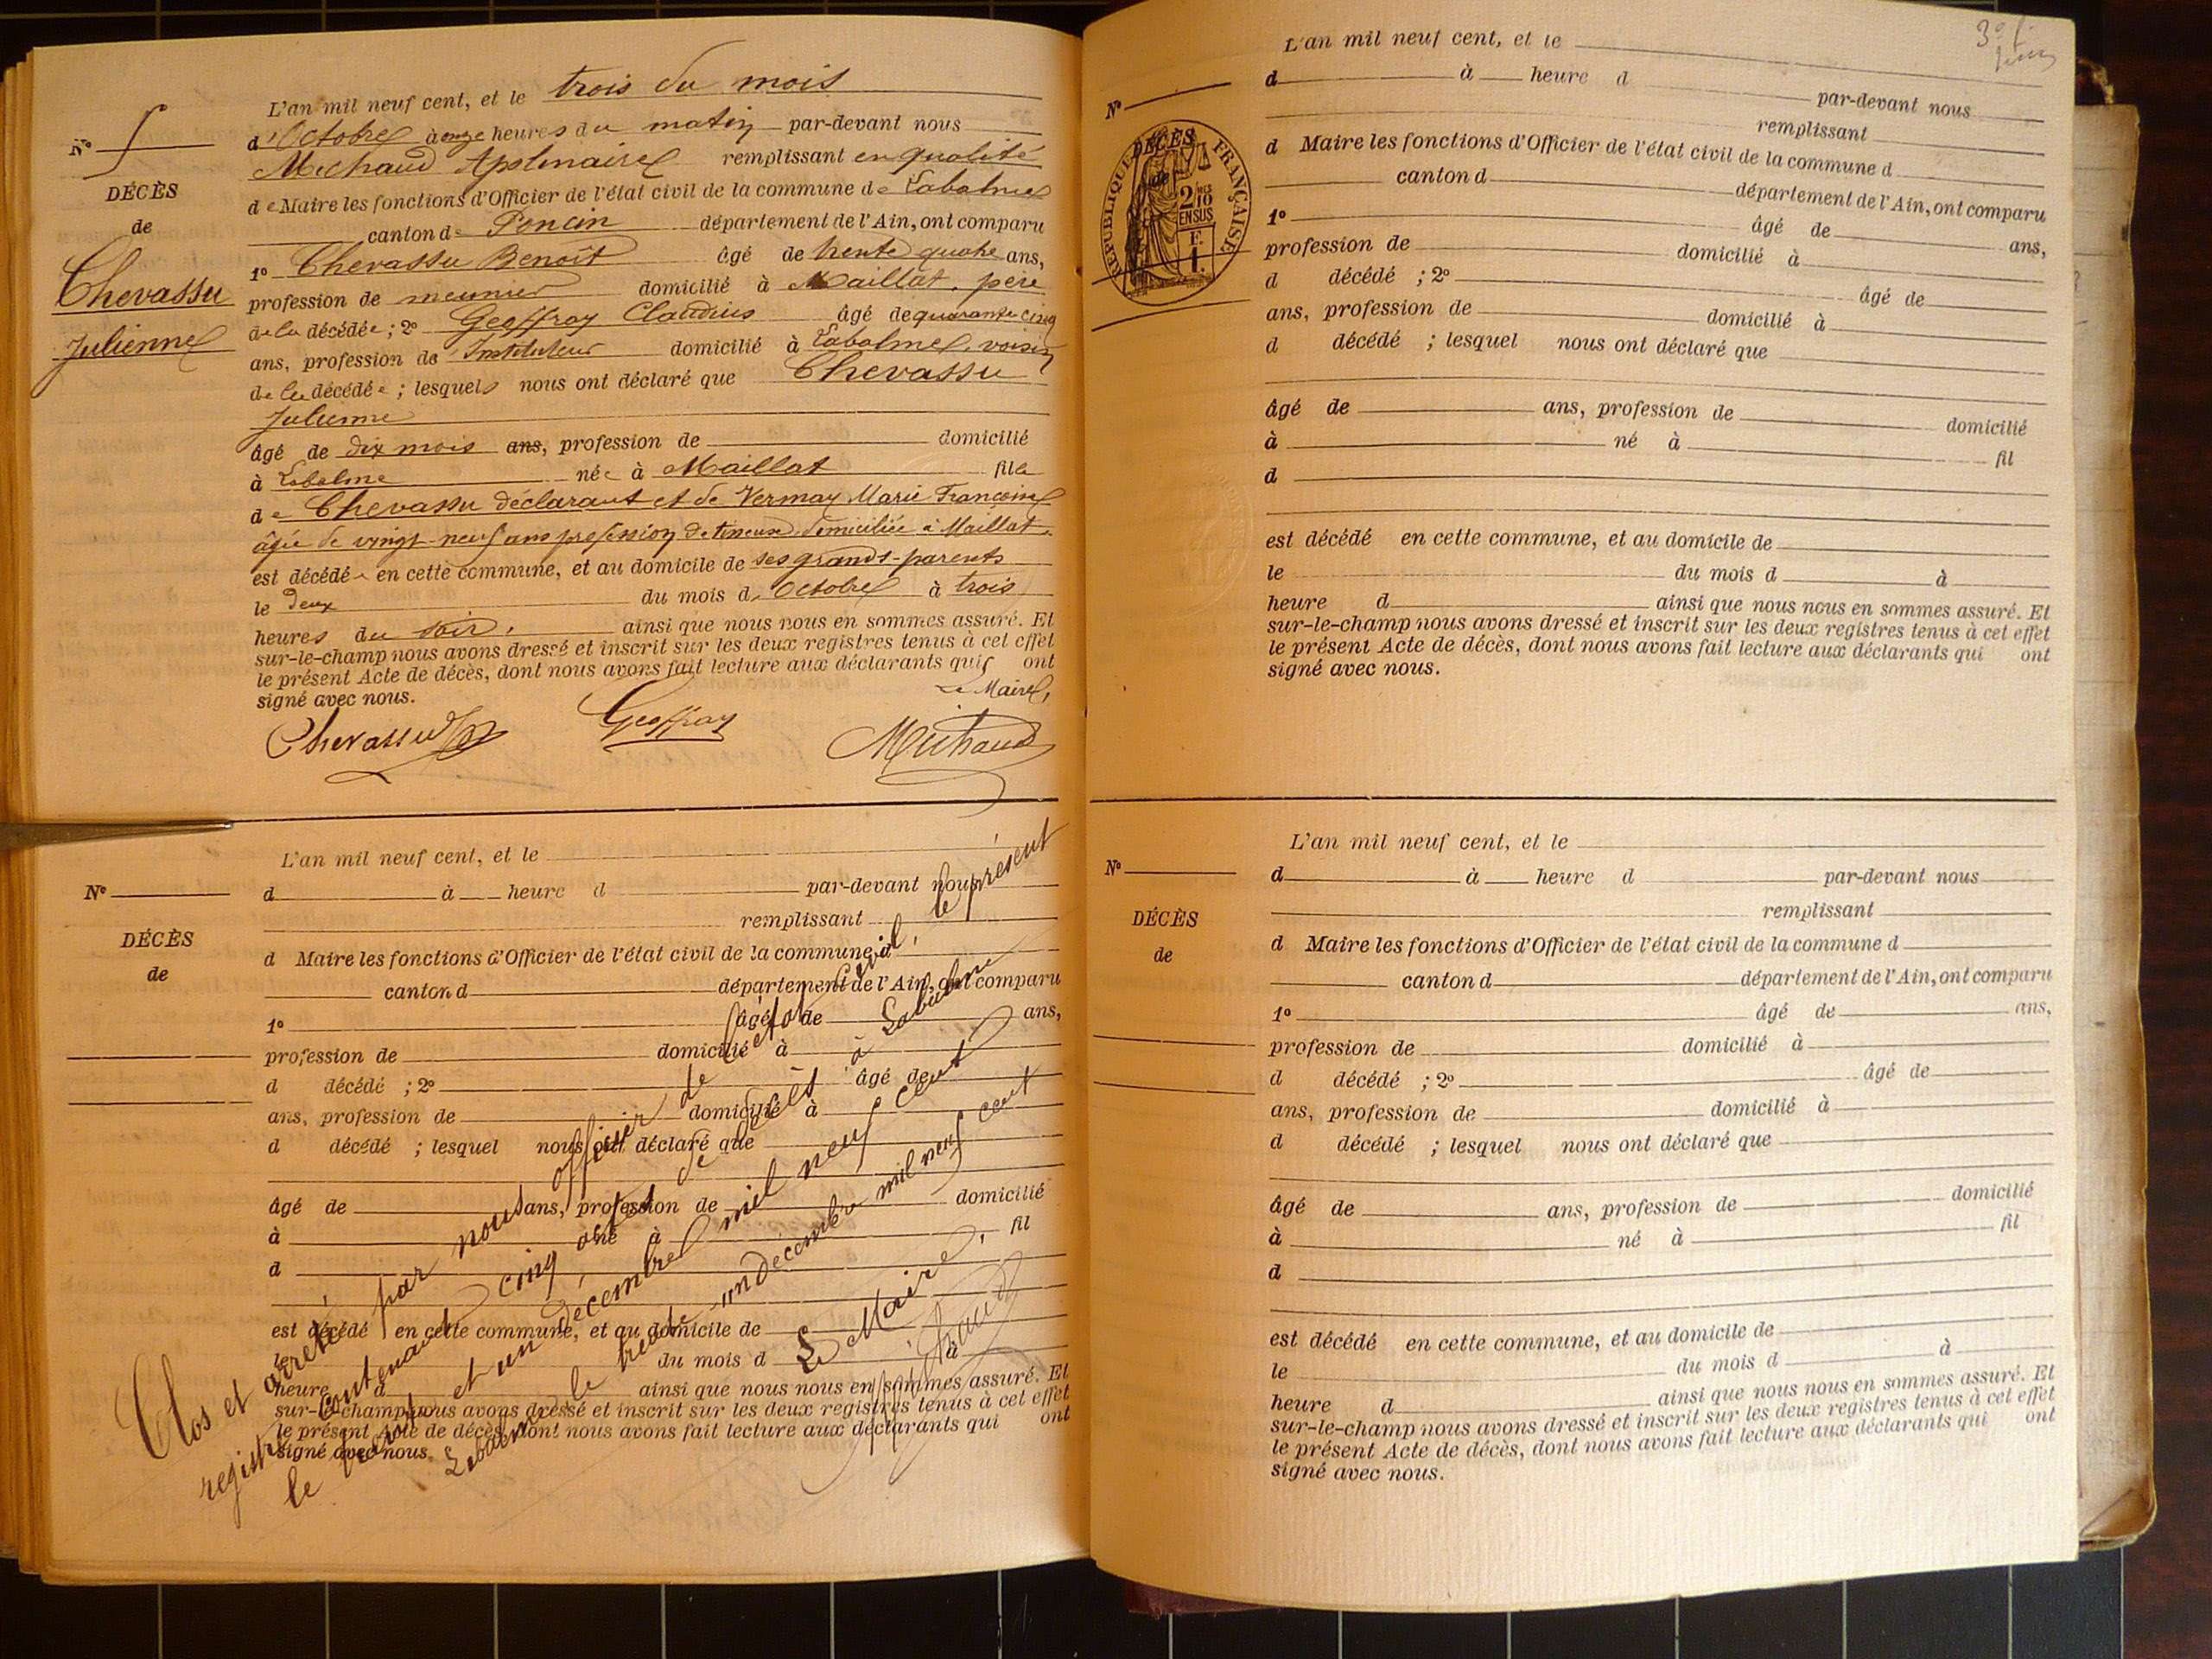 N° 5
DÉCÈS
de
Chevassu
Julienne
L'an mil neuf cent, et le trois du mois
d'Octobre à onze heures du matin par-devant nous
Michaud Apolinaire remplissant en qualité
de Maire les fonctions d'Officier de l'état civil de la commune de Labalme
canton de Poncin département de l'Ain, ont comparu
1° Chevassu Benoît âgé de trente quatre ans,
profession de meunier domicilié à Maillat, père
de la décédée ; 2° Geoffray Claudius âgé de quarante cinq
ans, profession de Instituteur domicilié à Labalme, voisin
de la décédée ; lesquels nous ont déclaré que Chevassu
Julienne
âgé de dix mois ans, profession de domicilié
à Labalme née à Maillat fille
de Chevassu déclarant et de Vermay Marie Françoise
âgée de vingt-neuf ans profession de domiciliée à Maillat.
est décédée en cette commune, et au domicile de ses grands-parents
le deux du mois d'Octobre à trois
heures du soir, ainsi que nous nous en sommes assuré. Et
sur-le-champ nous avons dressé et inscrit sur les deux registres tenus à cet effet
le présent Acte de décès, dont nous avons fait lecture aux déclarants qui ont
signé avec nous.
Le Maire,
Chevassu Geoffray Michaud
N°
DÉCÈS
de
L'an mil neuf cent, et le
d à heure d par-devant nous
remplissant
d Maire les fonctions d'Officier de l'état civil de la commune d
canton d département de l'Ain, ont comparu
1° âgé de ans,
profession de domicilié à
d décédé ; 2° âgé de
ans, profession de domicilié à
d décédé ; lesquel nous ont déclaré que
âgé de ans, profession de domicilié
à né à fil
d
est décédé en cette commune, et au domicile de
le du mois d à
heure d ainsi que nous nous en sommes assuré. Et
sur-le-champ nous avons dressé et inscrit sur les deux registres tenus à cet effet
le présent Acte de décès, dont nous avons fait lecture aux déclarants qui ont
signé avec nous.
Clos et arrêté par nous officier de l'état civil, le présent
registre contenant cinq actes de décès à Labalme
le trente et un décembre mil neuf cent
Labalme le trente-un décembre mil neuf cent
Le Maire,
Michaud
N°
RÉPUBLIQUE FRANÇAISE
DÉCÈS
de
2/10
EN SUS
F.
1.
L'an mil neuf cent, et le
d à heure d
par-devant nous
remplissant
d Maire les fonctions d'Officier de l'état civil de la commune d
canton d département de l'Ain, ont comparu
1° âgé de ans,
profession de domicilié à
d décédé ; 2° âgé de
ans, profession de domicilié à
d décédé ; lesquel nous ont déclaré que
âgé de ans, profession de domicilié
à né à fil
d
est décédé en cette commune, et au domicile de
le du mois d à
heure d ainsi que nous nous en sommes assuré. Et
sur-le-champ nous avons dressé et inscrit sur les deux registres tenus à cet effet
le présent Acte de décès, dont nous avons fait lecture aux déclarants qui ont
signé avec nous.
N°
DÉCÈS
de
L'an mil neuf cent, et le
d à heure d par-devant nous
remplissant
d Maire les fonctions d'Officier de l'état civil de la commune d
canton d département de l'Ain, ont comparu
1° âgé de ans,
profession de domicilié à
d décédé ; 2° âgé de
ans, profession de domicilié à
d décédé ; lesquel nous ont déclaré que
âgé de ans, profession de domicilié
à né à fil
d
est décédé en cette commune, et au domicile de
le du mois d à
heure d ainsi que nous nous en sommes assuré. Et
sur-le-champ nous avons dressé et inscrit sur les deux registres tenus à cet effet
le présent Acte de décès, dont nous avons fait lecture aux déclarants qui ont
signé avec nous.